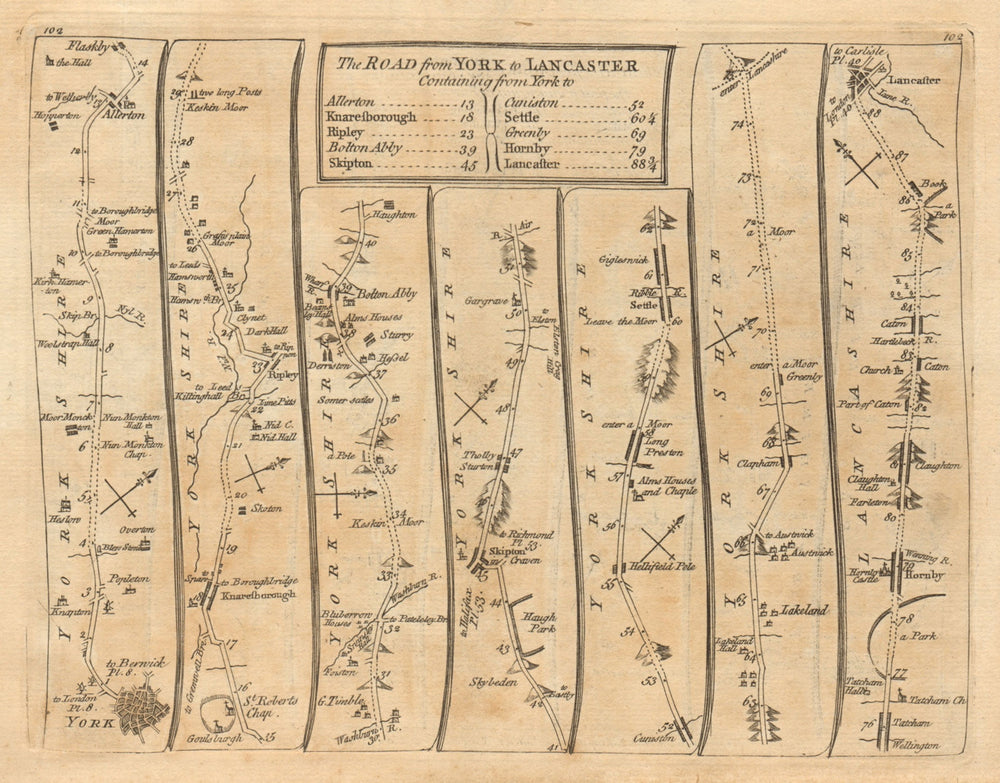 102
102
The ROAD from YORK to LANCASTER
Containing from York to
Allerton 13
Knaresborough 18
Ripley 23
Bolton Abby 39
Skipton 45
Cuniston 52
Settle 60¼
Greenby 69
Hornby 79
Lancaster 88¾
Flaskby
the Hall
14
to Wetherby
13
Hopperton
Allerton
12
11
to Boroughbridge
Moor
Green Hamerton
10
to Boroughbridge
Kirk Hamer-
ton
9
Skip Br.
Nyl R.
Woolstrap Hall
8
7
Moor Monck
ton
Nun Monkton
Hall
6
Nun Monkton
Chap.
5
Heslow
Overton
4
Blew Stone
Popleton
3
Knapton
2
to Berwick
Pl. 8.
to London
Pl. 8.
YORK
YORKSHIRE
29
two long Posts
Keskin Moor
28
27
Grasisplain
Moor
26
to Leeds
Hamsworth
25
Hamsw.th Br.
Clynet
24
Dark Hall
Nyd R.
to Rip
pon
23
Ripley
to Leeds
Killinghall Br.
Lime Pitts
22
Nid C.
Nid Hall
21
20
Skoton
19
to Boroughbridge
18
Knaresborough
17
to Gremwell Bri.
16
St. Roberts
Chap.
Goulsburgh
15
YORKSHIRE
Haughton
40
Wharf
R.
39
Bolton Abby
Beams
ley Hall
Alms Houses
38
Sturry
Derriston
Hessel
37
Somer scales
36
a Pole
35
34
Keskin Moor
33
Washburn R.
Bluberrow
Houses
to Pateley Br.
32
Foiston
31
G. Timble
Washburn R.
30
YORKSHIRE
R. Air
51
Gargrave
50
to Elston
Elston Crag
Hill
49
48
Tholby
47
Sturton
to Richmond
Pl. 53
Skipton
in
Craven
45
to Halifax
Pl. 53
44
Haugh
Park
43
Skybeden
to Eastby
42
41
YORKSHIRE
Gigleswick
61
Ribble R.
Settle
Leave the Moor
60
59
enter a Moor
58
Long
Preston
57
Alms Houses
and Chaple
56
Hellifield Pole
55
54
53
52
Cuniston
YORKSHIRE
enter Lancashire
74
73
72
a Moor
71
70
enter a Moor
Greenby
69
68
Clapham
67
66
to Austwick
Austwick
65
Lakeland
Lakeland
Hall
64
63
YORKSHIRE
to Carlisle
Pl. 40
Lancaster
Lune R.
to London
Pl. 40
88
87
Book
86
a
Park
85
84
Caton
Hartlebeck R.
83
Church
Caton
Part of Caton
82
81
Claughton
Claughton
Hall
Farleton
80
Wenning R.
79
Hornby
Castle
Hornby
78
a Park
77
Tatcham
Hall
Tatcham Ch
76
Tatcham
Wellington
LANCASHIRE